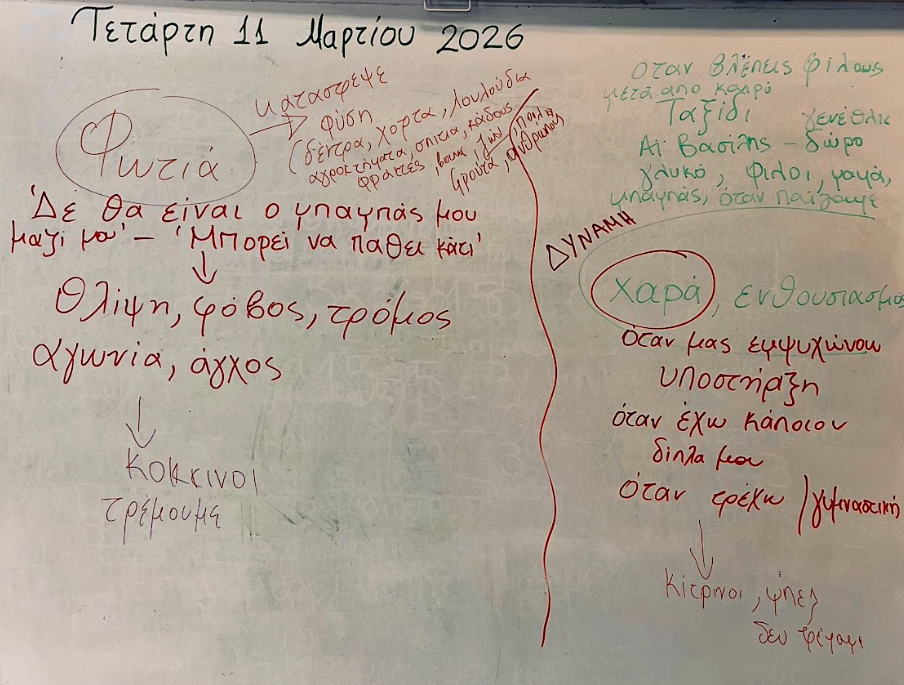 Τετάρτη 11 Μαρτίου 2026
Φωτιά
κατάστρεψε
φύση
(δέντρα, χόρτα, λουλούδια
αγροκτήματα, σπίτια, κάδους
φράχτες,
φρούτα, ανθρώπους
'Δε θα είναι ο μπαμπάς μου
μαζί μου' – 'Μπορεί να πάθει κάτι'
Θλίψη, φόβος, τρόμος
αγωνία, άγχος
Κοκκινοι
τρέμουμε
όταν βλέπεις φίλους
μετά από καιρό
Ταξίδι γενέθλια
Αϊ Βασίλης – δώρο
γλυκό, φιλοι, μαμά,
μπαμπάς, όταν παίζουμε
ΔΥΝΑΜΗ
χαρά, ενθουσιασμός
όταν μας εμψυχώνουν
υποστήριξη
όταν έχω κάποιον
δίπλα μου
όταν τρέχω / γυμναστική
Κίτρινοι,
δεν